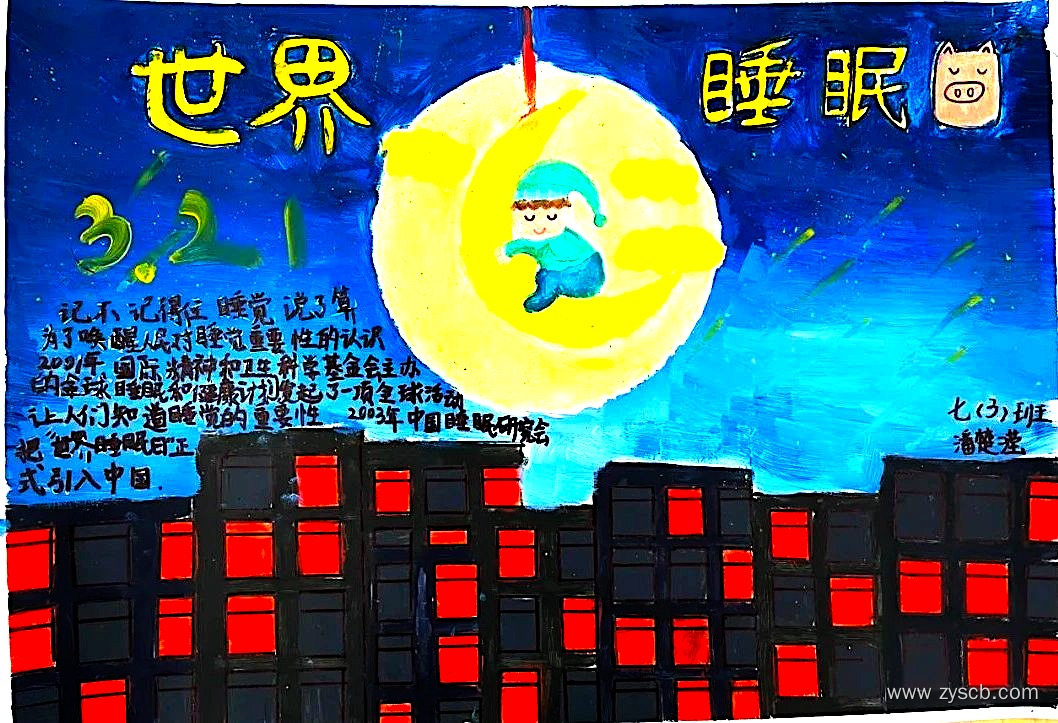 世界 睡眠
3.21
记不记得住 睡觉 说了算
为了唤醒人民对睡觉重要性的认识
2001年 国际精神和卫生科学基金会主办
的全球睡眠和健康计划发起了一项全球活动
让人们知道睡觉的重要性 2003年中国睡眠研究会
把“世界睡眠日”正
式引入中国.
七(3)班
潘楚滢
www.zyscb.com